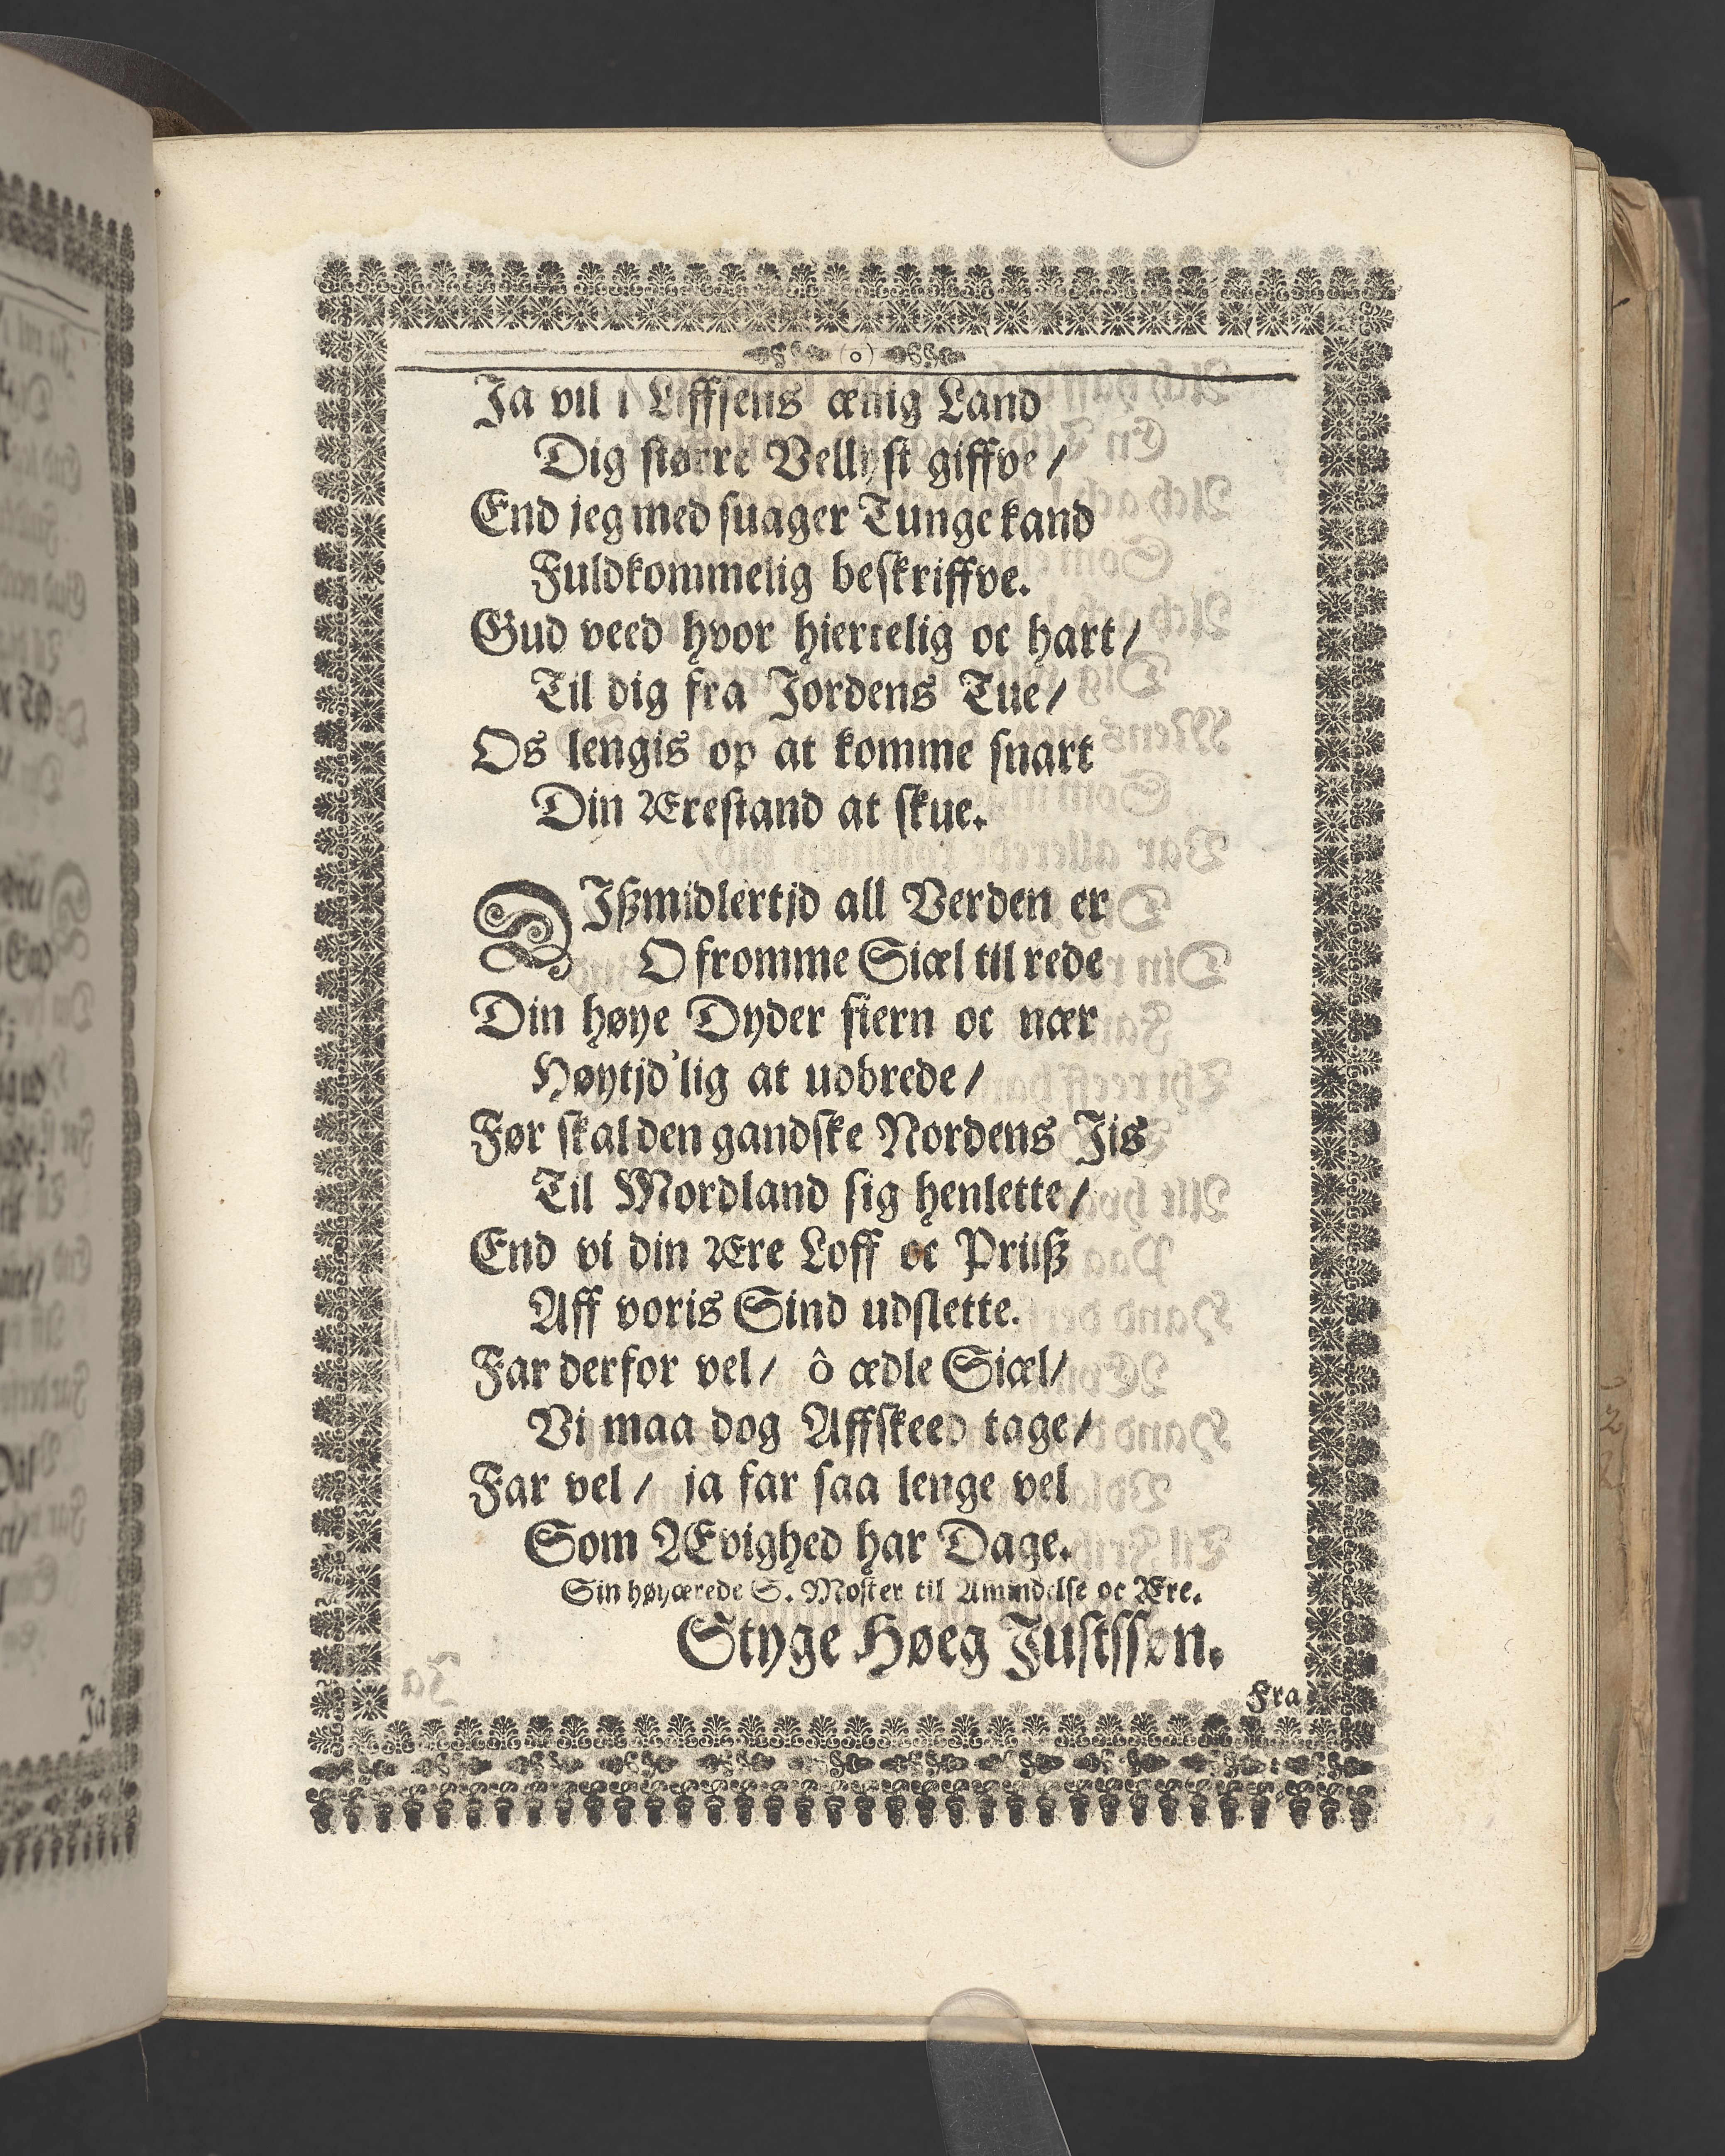 (o)
Ja vil i Liffsens ænig Land
Dig større Vellyst giffve/
End jeg med suager Tunge kand
Fuldkommelig beskriffve.
Gud veed hvor hiertelig oc hart/
Til dig fra Jordens Tue/
Os lengis op at komme snart
Din Ærestand at skue.
DIßmidlertjd all Verden er
O fromme Siæl til rede
Din høye Dyder fiern oc nær
Høytjd'lig at udbrede/
Før skal den gandske Nordens Jis
Til Mordland sig henlette/
End vi din Ære Loff oc Priiß
Aff voris Sind udslette.
Far derfor vel/ ô ædle Siæl/
Vi maa dog Affskeed tage/
Far vel/ ja far saa lenge vel
Som Ævighed har Dage.
Sin høyærede S. Moster til Amindelse oc Ære.
Styge Høeg Justssøn.
Fra
Ja